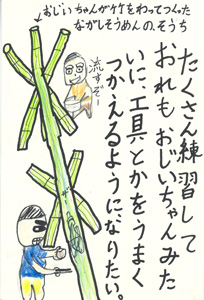 おじいちゃんが竹をわってつくった
ながしそうめんの、そうち
流すぞー
たくさん練習して
おれもおじいちゃんみた
いに、工具とかをうまく
つかえるように、なりたい。